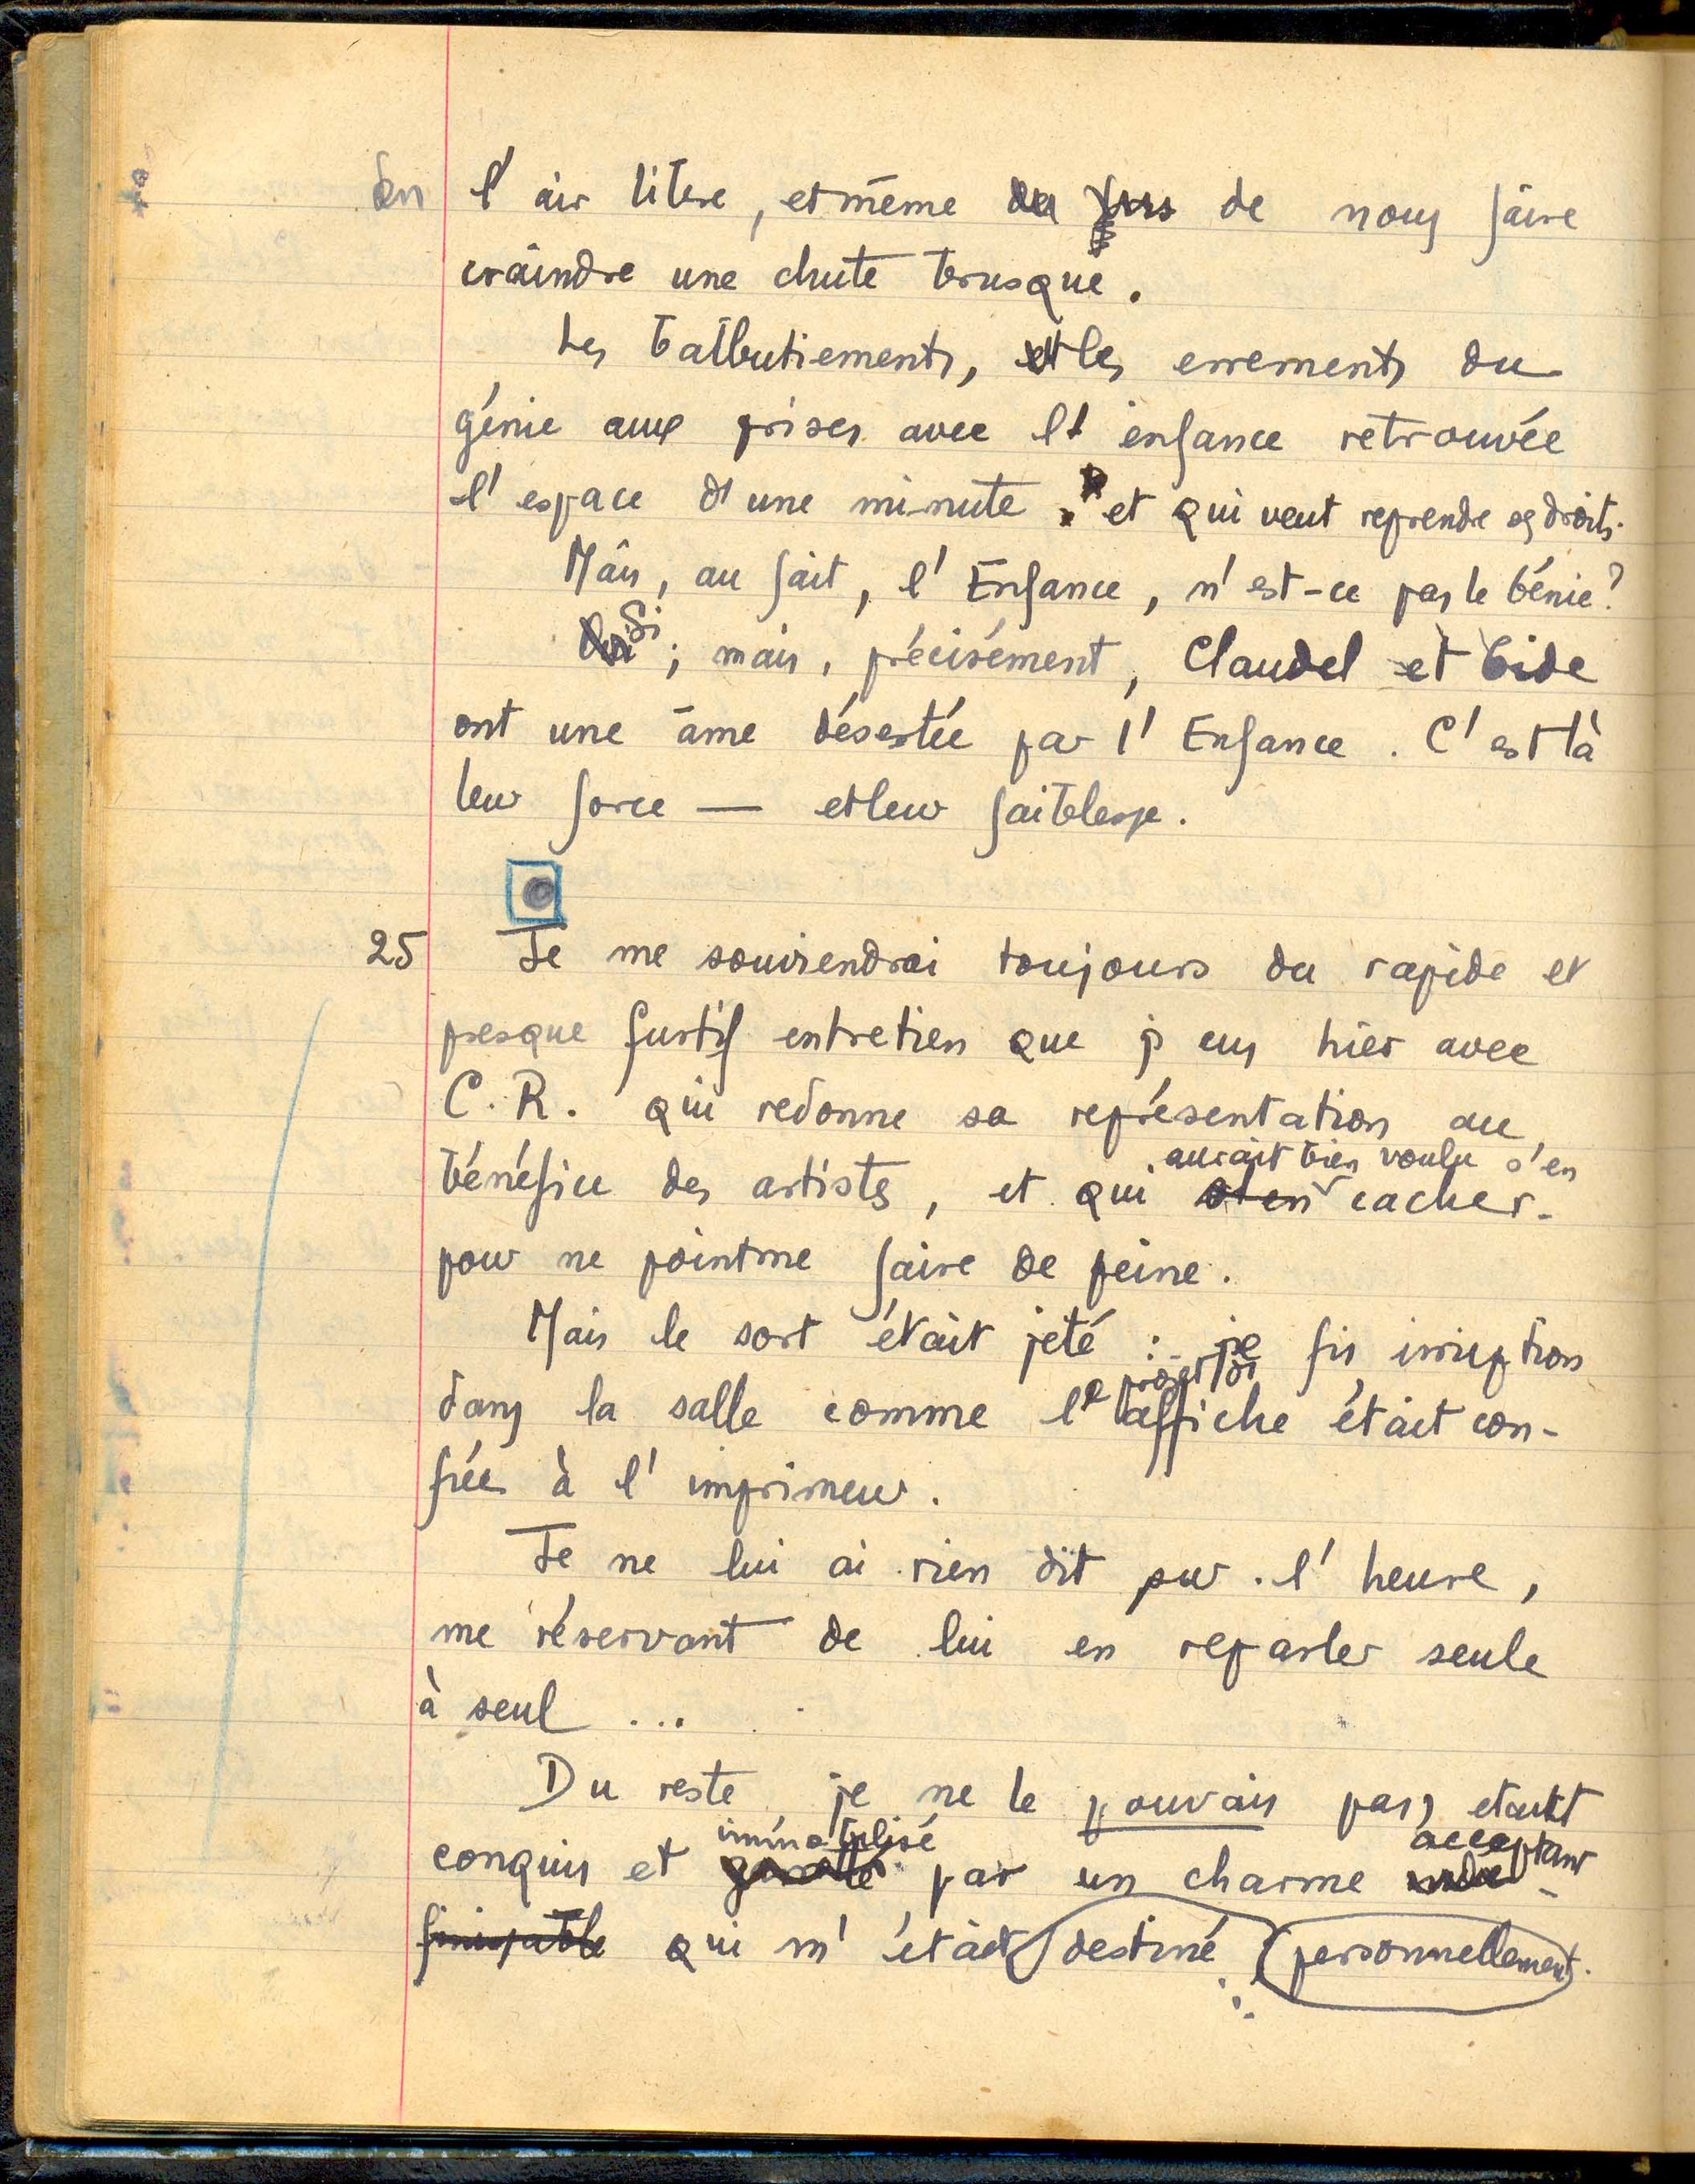 en l'air libre, et même de nous faire
craindre une chute brusque.
Les balbutiements, et les errements du
génie aux prises avec l'enfance retrouvée
l'espace d'une minute et qui veut reprendre ses droits.
Mais, au fait, l'Enfance, n'est-ce pas le Génie?
Si; mais, précisément, Claudel et Gide
ont une âme désertée par l'Enfance. C'est là
leur force — et leur faiblesse.
25 Je me souviendrai toujours du rapide et
presque furtif entretien que j'eus hier avec
C.R. qui redonne sa représentation au
bénéfice des artistes, et qui aurait bien voulu s'en cacher
pour ne point me faire de peine.
Mais le sort était jeté : je fis irruption
dans la salle comme le projet d'affiche était con-
fiée à l'imprimeur.
Je ne lui ai rien dit sur l'heure,
me réservant de lui en reparler seule
à seul ...
Du reste je ne le pouvais pas, étant
conquis et immobilisé par un charme acceptant
qui m'était destiné personnellement.